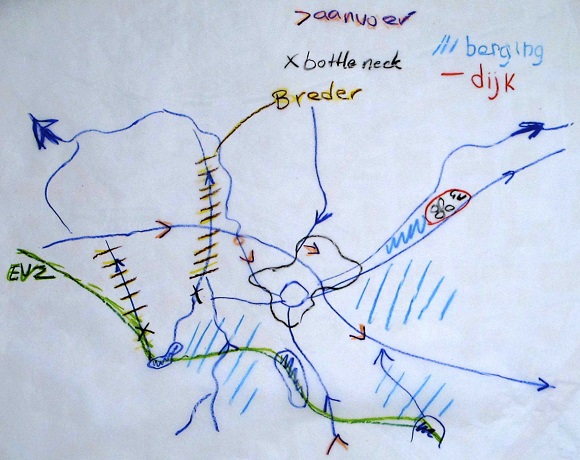 >aanvoer
/// berging
x bottleneck
— dijk
Breder
EVZ